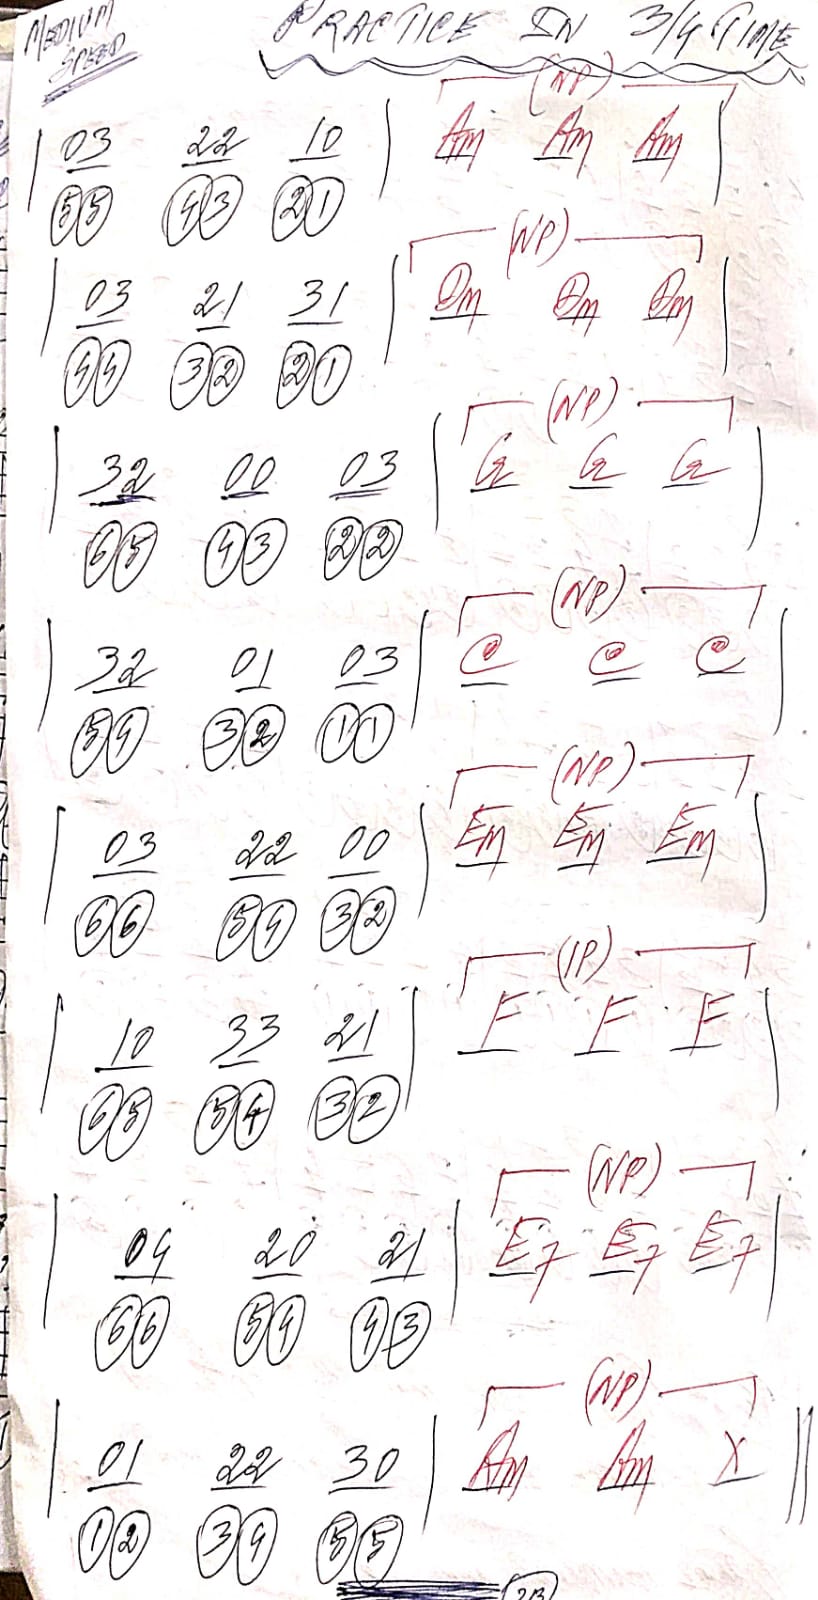 MEDIUM SPEED
PRACTICE IN 3/4 TIME
(NP)
| 03 22 10 | Am Am Am |
55 43 21
(NP)
| 03 21 31 | Dm Dm Dm |
44 32 21
(NP)
| 32 00 03 | G G G |
65 43 22
(NP)
| 32 01 03 | C C C |
54 32 11
(NP)
| 03 22 00 | Em Em Em |
66 54 32
(IP)
| 10 33 21 | F F F |
65 54 32
(NP)
| 04 20 21 | E7 E7 E7 |
66 54 43
(NP)
| 01 22 30 | Am Am X ||
12 34 55